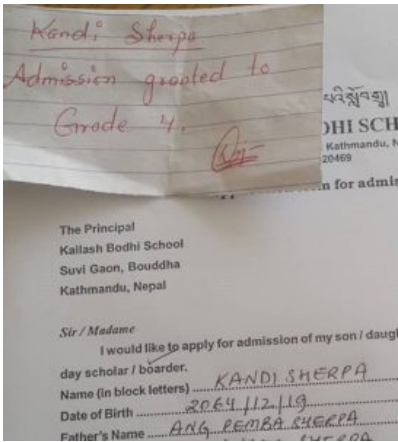 Kandi Sherpa
Admission granted to
Grade 4.
DHI SCH
Kathmandu, N
20469
n for admi
The Principal
Kailash Bodhi School
Suvi Gaon, Bouddha
Kathmandu, Nepal
Sir / Madame
I would like to apply for admission of my son / daug
day scholar / boarder.
Name (in block letters) KANDI SHERPA
Date of Birth 2064/12/19
Father's Name ANG PEMBA SHERPA